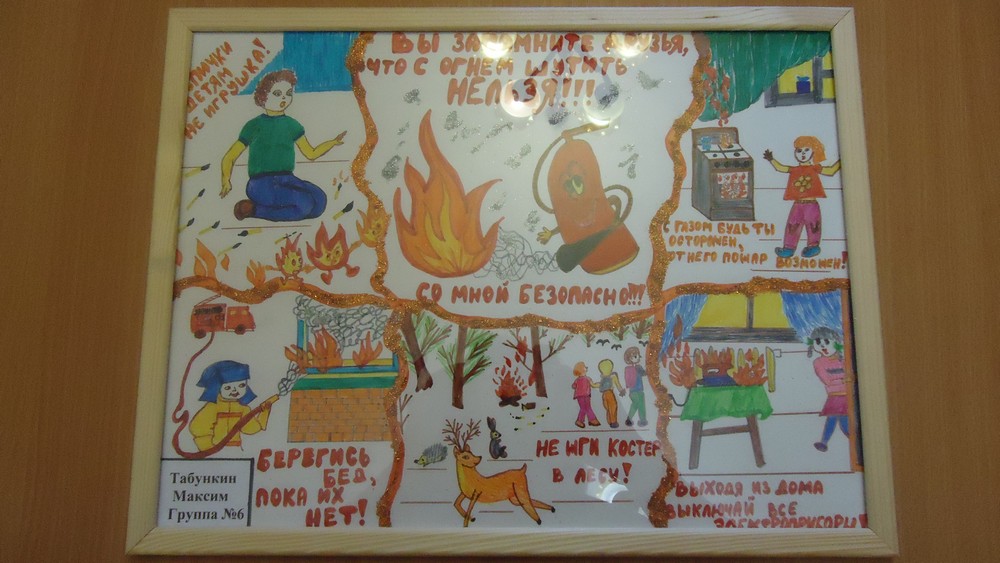 СПИЧКИ
ДЕТЯМ
НЕ ИГРУШКА!
ВЫ ЗАПОМНИТЕ ДРУЗЬЯ,
ЧТО С ОГНЕМ ШУТИТЬ
НЕЛЬЗЯ!!!
СО МНОЙ БЕЗОПАСНО!!!
С ГАЗОМ БУДЬ ТЫ
ОСТОРОЖЕН,
ОТ НЕГО ПОЖАР ВОЗМОЖЕН!
БЕРЕГИСЬ
БЕД,
ПОКА ИХ
НЕТ!
НЕ ЖГИ КОСТЕР
В ЛЕСУ!
ВЫХОДЯ ИЗ ДОМА
ВЫКЛЮЧАЙ ВСЕ
ЭЛЕКТРОПРИБОРЫ!
Табункин
Максим
Группа №6